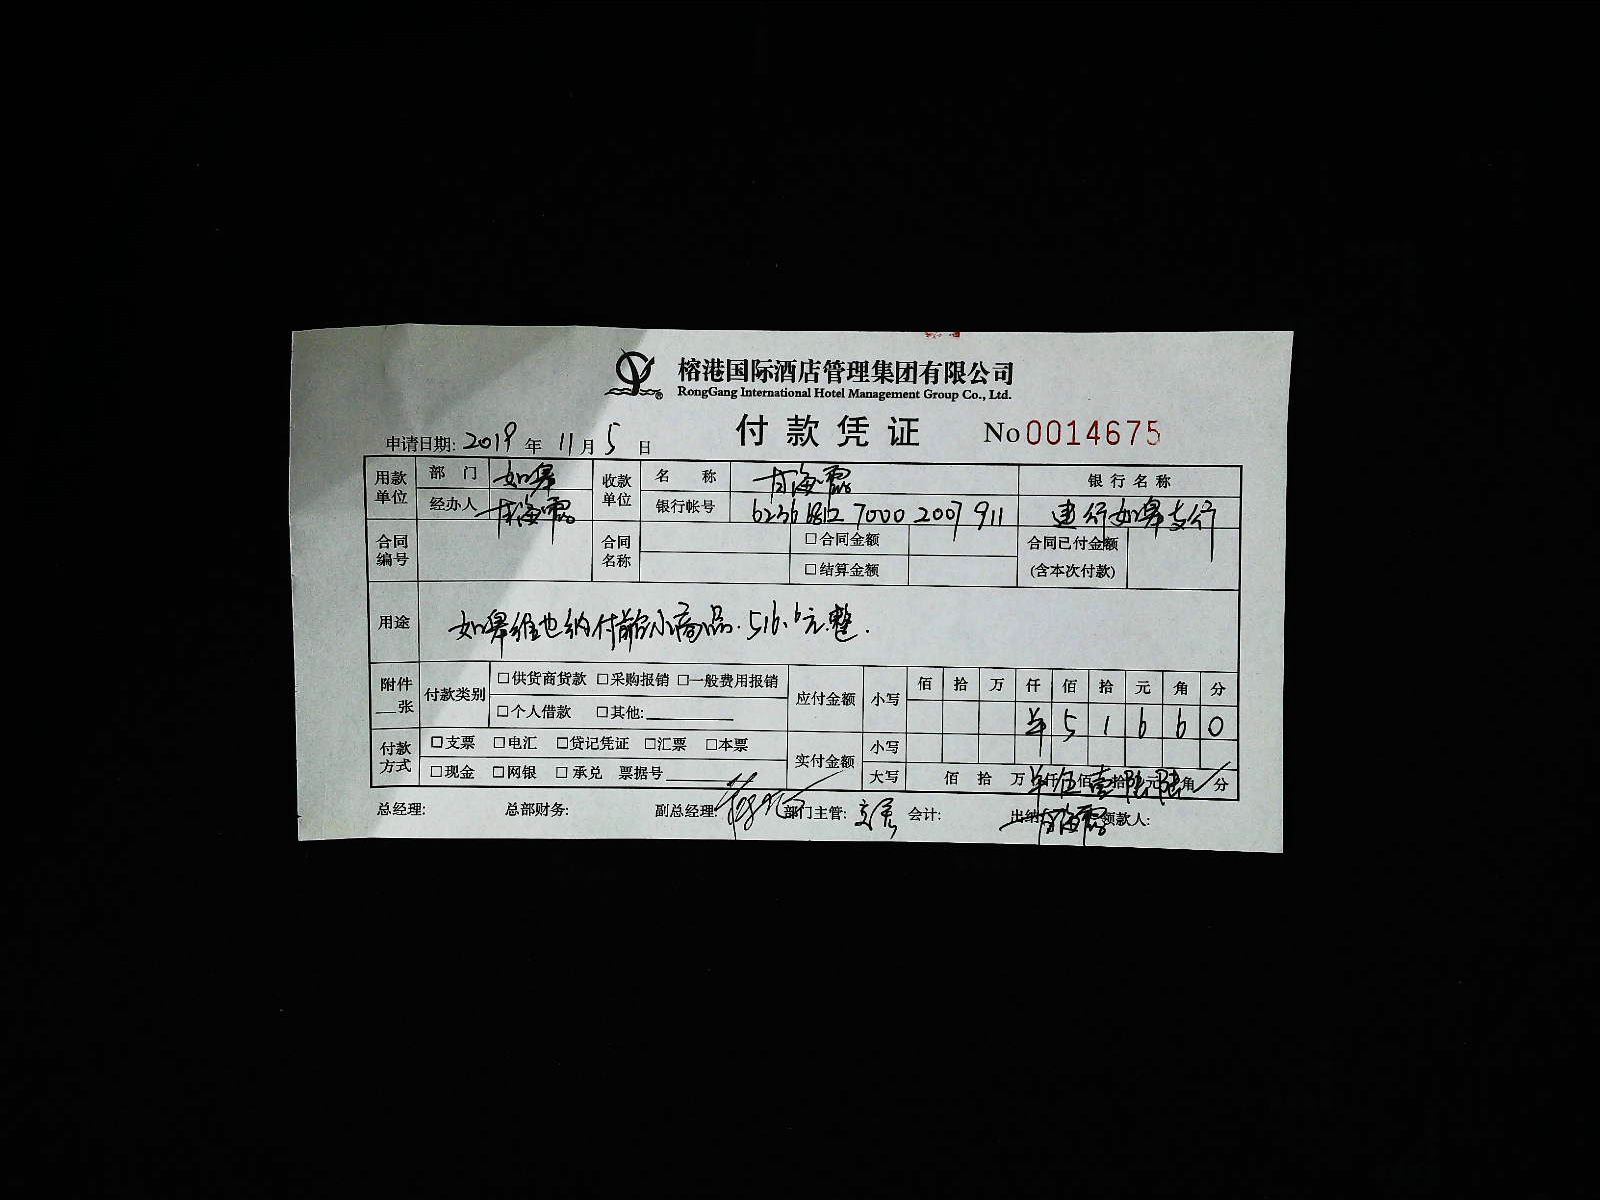 榕港国际酒店管理集团有限公司
RongGang International Hotel Management Group Co., Ltd.
付款凭证 No 0014675
申请日期: 2019 年 11 月 5 日
用款单位 部门 如皋 收款单位 名称 甘海霞 银行名称
经办人 甘海霞 银行帐号 6236 6812 7000 2007 911 建行如皋支行
合同编号 合同名称 □合同金额 合同已付金额
□结算金额 (含本次付款)
用途 如皋维也纳付前台小商品. 516.6元整.
附件 __张 付款类别 □供货商货款 □采购报销 □一般费用报销 应付金额 小写 佰 拾 万 仟 佰 拾 元 角 分
□个人借款 □其他:________ ¥ 5 1 6 6 0
付款方式 □支票 □电汇 □贷记凭证 □汇票 □本票 实付金额 小写
□现金 □网银 □承兑 票据号________ 大写 佰 拾 万 仟 伍 佰 壹 拾 陆 元 陆 角 / 分
总经理: 总部财务: 副总经理: 部门主管: 会计: 出纳: 甘海霞 领款人: